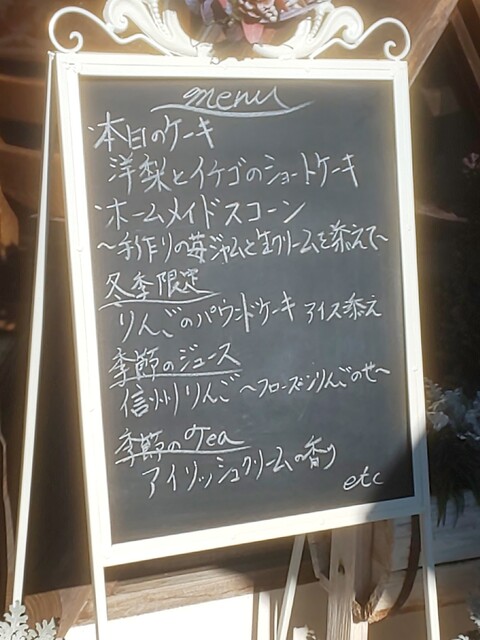 menu
・本日のケーキ
洋梨とイチゴのショートケーキ
・ホームメイドスコーン
〜手作りの苺ジャムと生クリームを添えて〜
冬季限定
りんごのパウンドケーキ アイス添え
季節のジュース
信州りんご 〜フローズンりんごのせ〜
季節のtea
アイリッシュクリームの香り
etc